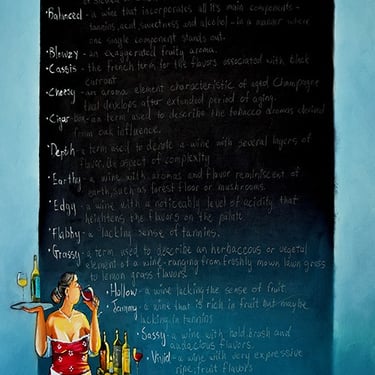 Balanced - a wine that incorporates all it's main components -
tannins, acid, sweetness and alcohol - in a manner where
one single component stands out.
Blowzy - an exaggerated fruity aroma.
Cassis - the french term for the flavors associated with black
currant
Cheesy - an aroma element characteristic of aged Champagne
that develops after extended period of aging.
Cigar-box - an term used to describe the tobacco aromas derived
from oak influence.
Depth - a term used to denote a wine with several layers of
flavor. An aspect of complexity
Earthy - a wine with aromas and flavor reminiscent of
earth, such as forest floor or mushrooms.
Edgy - a wine with a noticeably level of acidity that
heightens the flavors on the palate
Flabby - a lacking sense of tannins.
Grassy - a term used to describe an herbaceous or vegetal
element of a wine - ranging from freshly mown lawn grass
to lemon grass flavors
Hollow - a wine lacking the sense of fruit
Jammy - a wine that is rich in fruit but maybe
lacking in tannins
Sassy - a wine with bold, brash and
audacious flavors.
Vivid - a wine with very expressive
ripe fruit flavors